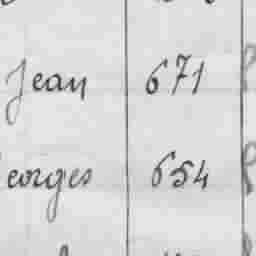 Jean 671
eorges 654